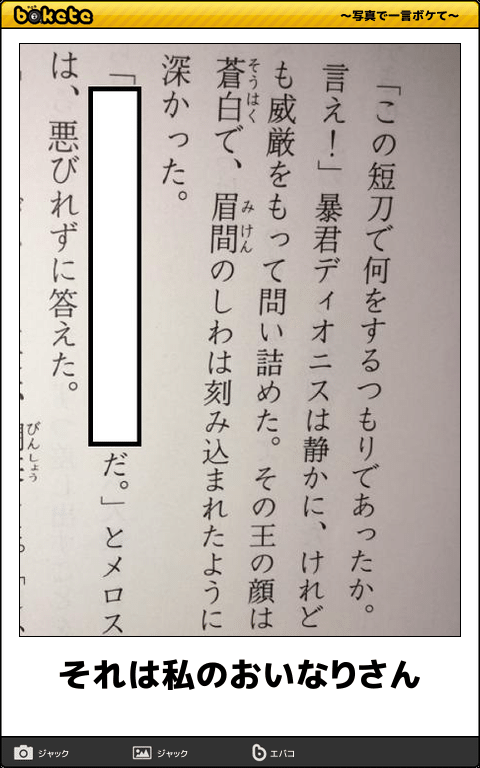 bokete
〜写真で一言ボケて〜
「この短刀で何をするつもりであったか。
言え！」暴君ディオニスは静かに、けれど
も威厳をもって問い詰めた。その王の顔は
蒼白で、眉間のしわは刻み込まれたように
深かった。
「 だ。」とメロス
は、悪びれずに答えた。
それは私のおいなりさん
ジャック
ジャック
エバコ